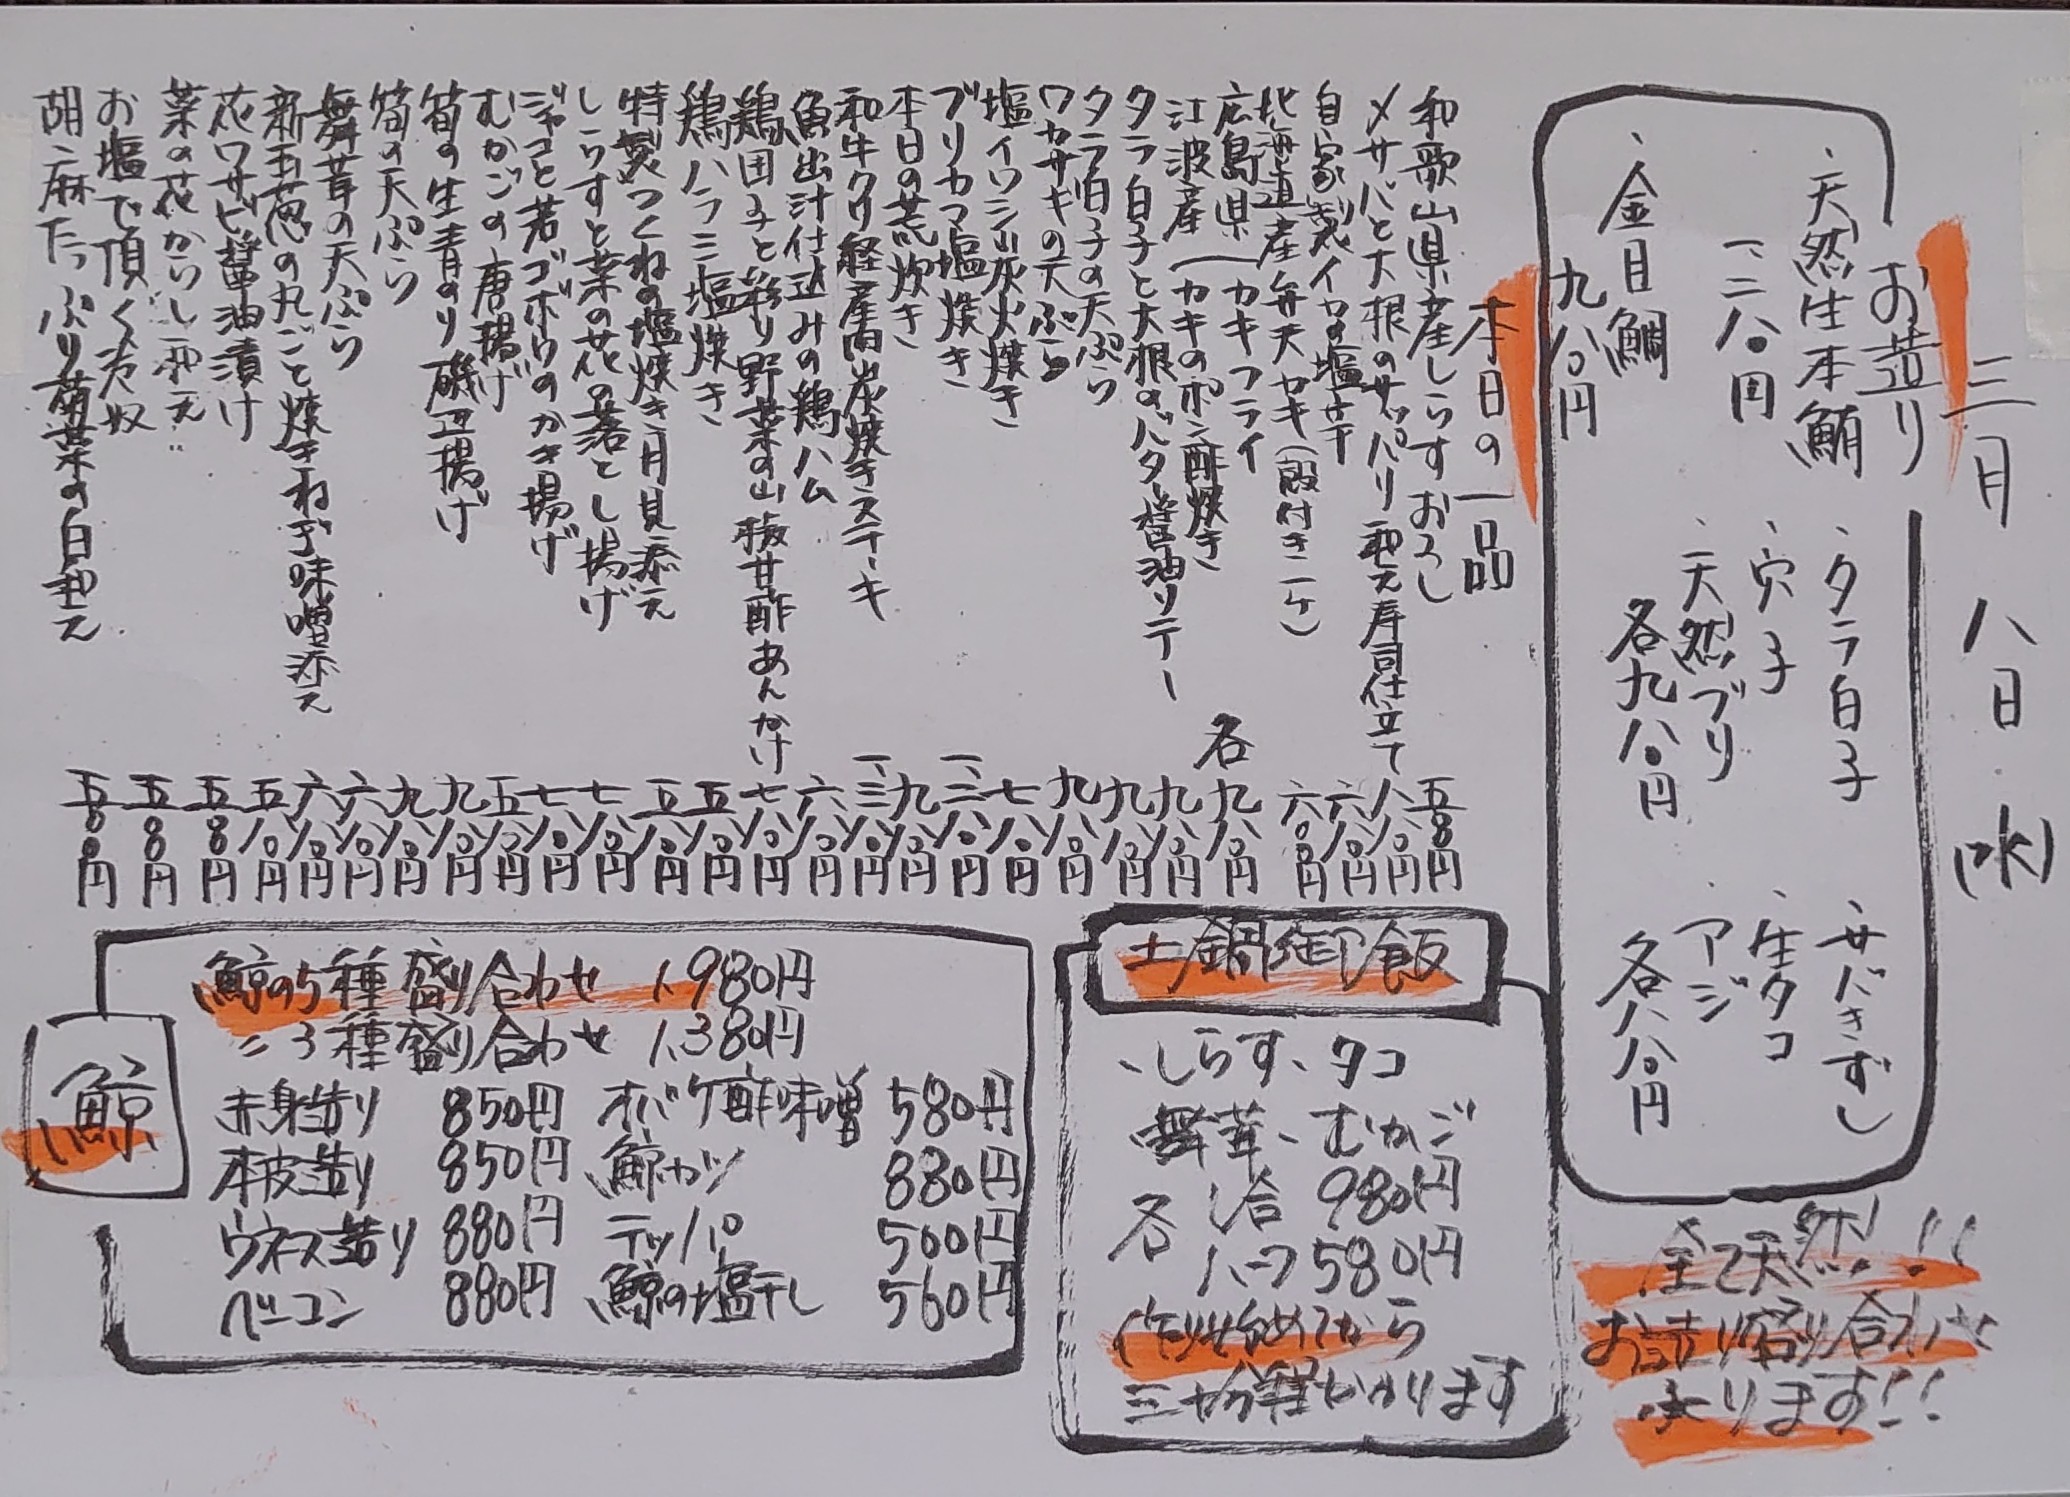 三月八日(水)
お造り
・天然生本鮪
一、二八〇円
・金目鯛
九八〇円
・タラ白子
・穴子
・天然ブリ
各九八〇円
・サバきずし
・生タコ
・アジ
各八八〇円
全て天然!!
お造り盛り合わせ
承ります!!
本日の一品
和歌山県産しらすおろし 五八〇円
〆サバと大根のサッパリ和え寿司仕立て 八八〇円
自家製イカの塩辛 六八〇円
北海道産弁天カキ(殻付き一ケ) 六〇〇円
広島県 カキフライ
江波産 カキのポン酢焼き 各九八〇円
タラ白子と大根のバター醤油ソテー 九八〇円
タラ白子の天ぷら 九八〇円
ワカサギの天ぷら 九八〇円
塩イワシ炭火焼き 七八〇円
ブリカマ塩焼き 一、二八〇円
本日の荒炊き 九八〇円
和牛クリ経産肉炭焼きステーキ 一、三八〇円
魚出汁仕込みの鶏ハム 六八〇円
鶏団子と彩り野菜の山椒甘酢あんかけ 七八〇円
鶏ハラミ塩焼き 五八〇円
特製つくねの塩焼き月見添え 五八〇円
しらすと菜の花の落とし揚げ 七八〇円
ジャコと若ゴボウのかき揚げ 七八〇円
むかごの唐揚げ 五八〇円
筍の生青のり磯辺揚げ 九八〇円
筍の天ぷら 九八〇円
舞茸の天ぷら 六八〇円
新玉葱の丸ごと焼きねぎ味噌添え 六八〇円
花ワサビ醤油漬け 五八〇円
菜の花からし和え 五八〇円
お塩で頂く冷奴 五八〇円
胡麻たっぷり菊菜の白和え 五八〇円
土鍋御飯
・しらす、・タコ
・舞茸、・むかご
各 1合 980円
ハーフ 580円
作り始めてから
三十分程かかります
鯨
鯨の5種盛り合わせ 1,980円
〃 3種盛り合わせ 1,380円
赤身造り 850円 オバケ酢味噌 580円
本皮造り 850円 鯨カツ 880円
ウネス造り 880円 テッパ 560円
ベーコン 880円 鯨の塩干し 560円